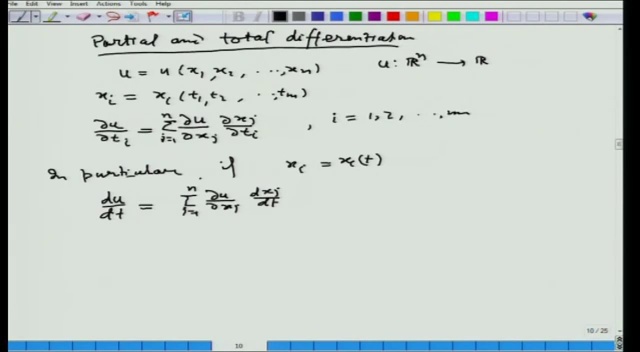 File Edit View Insert Actions Tools Help
Partial and total differentiation
u = u(x₁, x₂, ..., xₙ)    u: ℝⁿ → ℝ
xᵢ = xᵢ(t₁, t₂, ..., tₘ)
∂u/∂tᵢ = Σⱼ₌₁ⁿ ∂u/∂xⱼ ∂xⱼ/∂tᵢ , i = 1, 2, ..., m
In particular, if xᵢ = xᵢ(t)
du/dt = Σⱼ₌₁ⁿ ∂u/∂xⱼ dxⱼ/dt
10 / 25
10